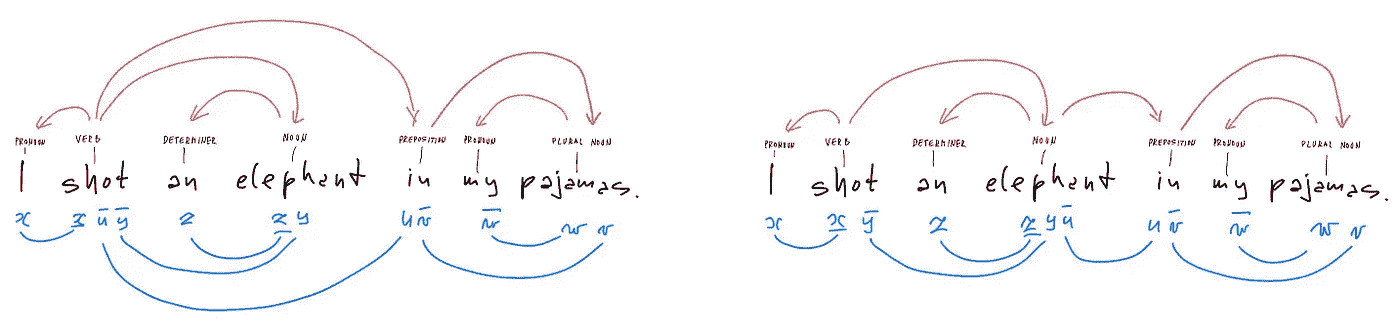 PRONOUN VERB DETERMINER NOUN PREPOSITION PRONOUN PLURAL NOUN
I shot an elephant in my pajamas.
x x̲ ū ȳ z z̲ y u v̄ w̄ w v
PRONOUN VERB DETERMINER NOUN PREPOSITION PRONOUN PLURAL NOUN
I shot an elephant in my pajamas.
x x̲ ȳ z z̲ y ū u v̄ w̄ w v